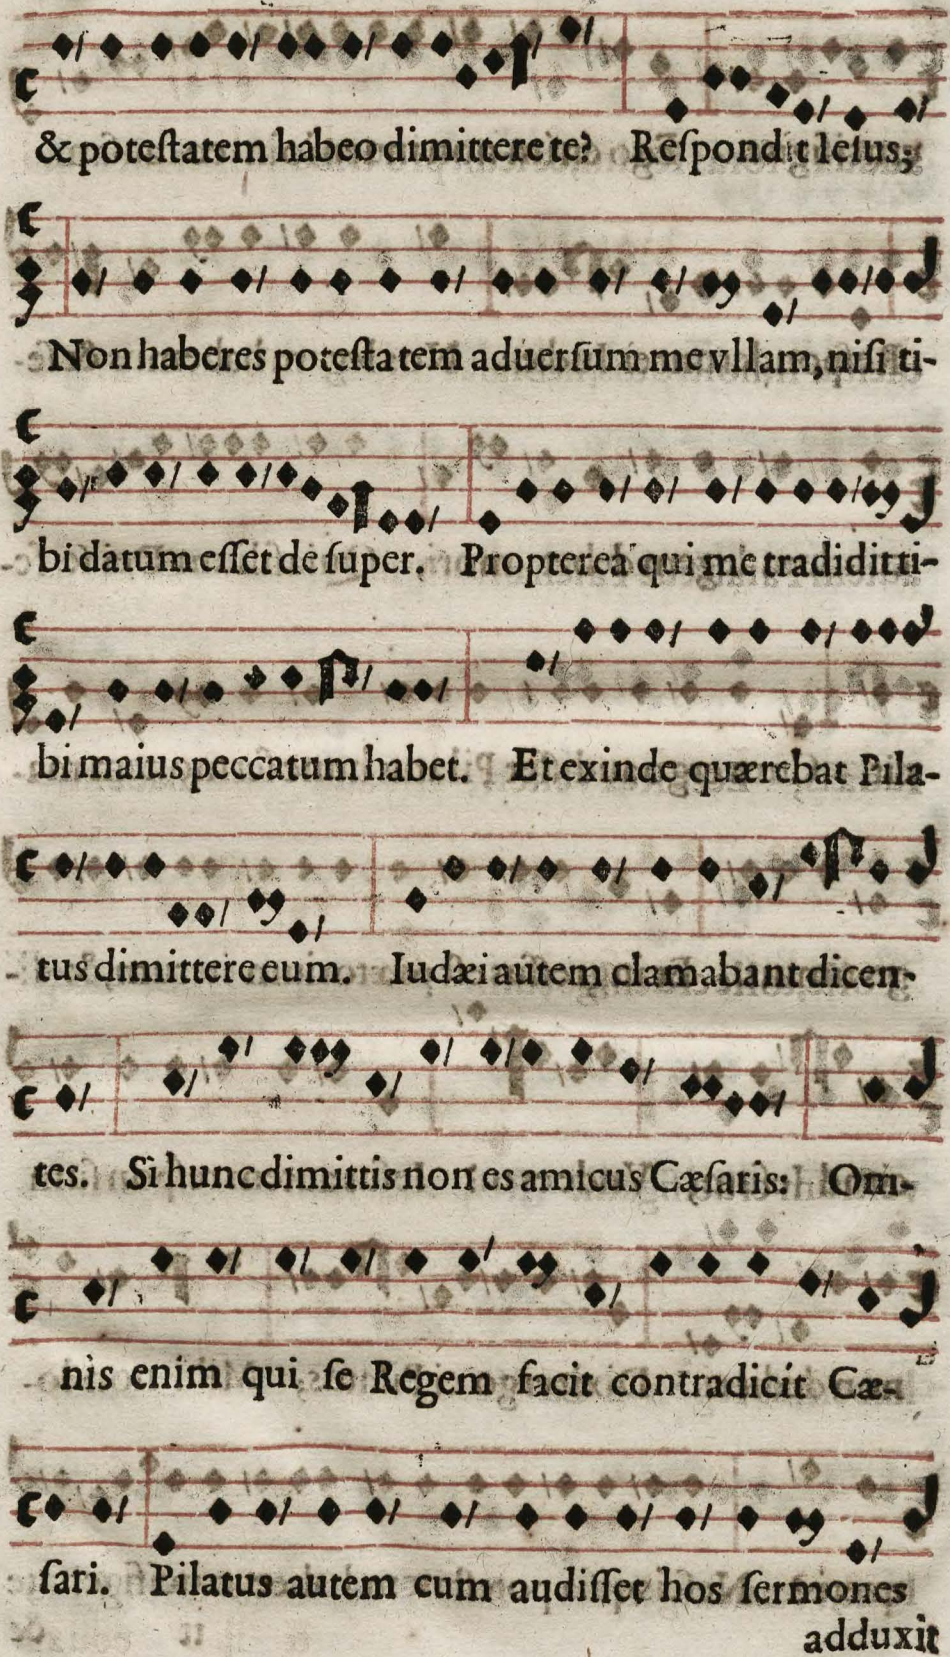 & poteſtatem habeo dimittere te? Reſpondit Ieſus;
Non haberes poteſtatem aduerſum me vllam, niſi ti-
bi datum eſſet de ſuper. Propterea qui me tradidit ti-
bi maius peccatum habet. Et exinde quærebat Pila-
tus dimittere eum. Iudæi autem clamabant dicen-
tes. Si hunc dimittis non es amicus Cæſaris: Om-
nis enim qui ſe Regem facit contradicit Cæ-
ſari. Pilatus autem cum audiſſet hos ſermones
adduxit